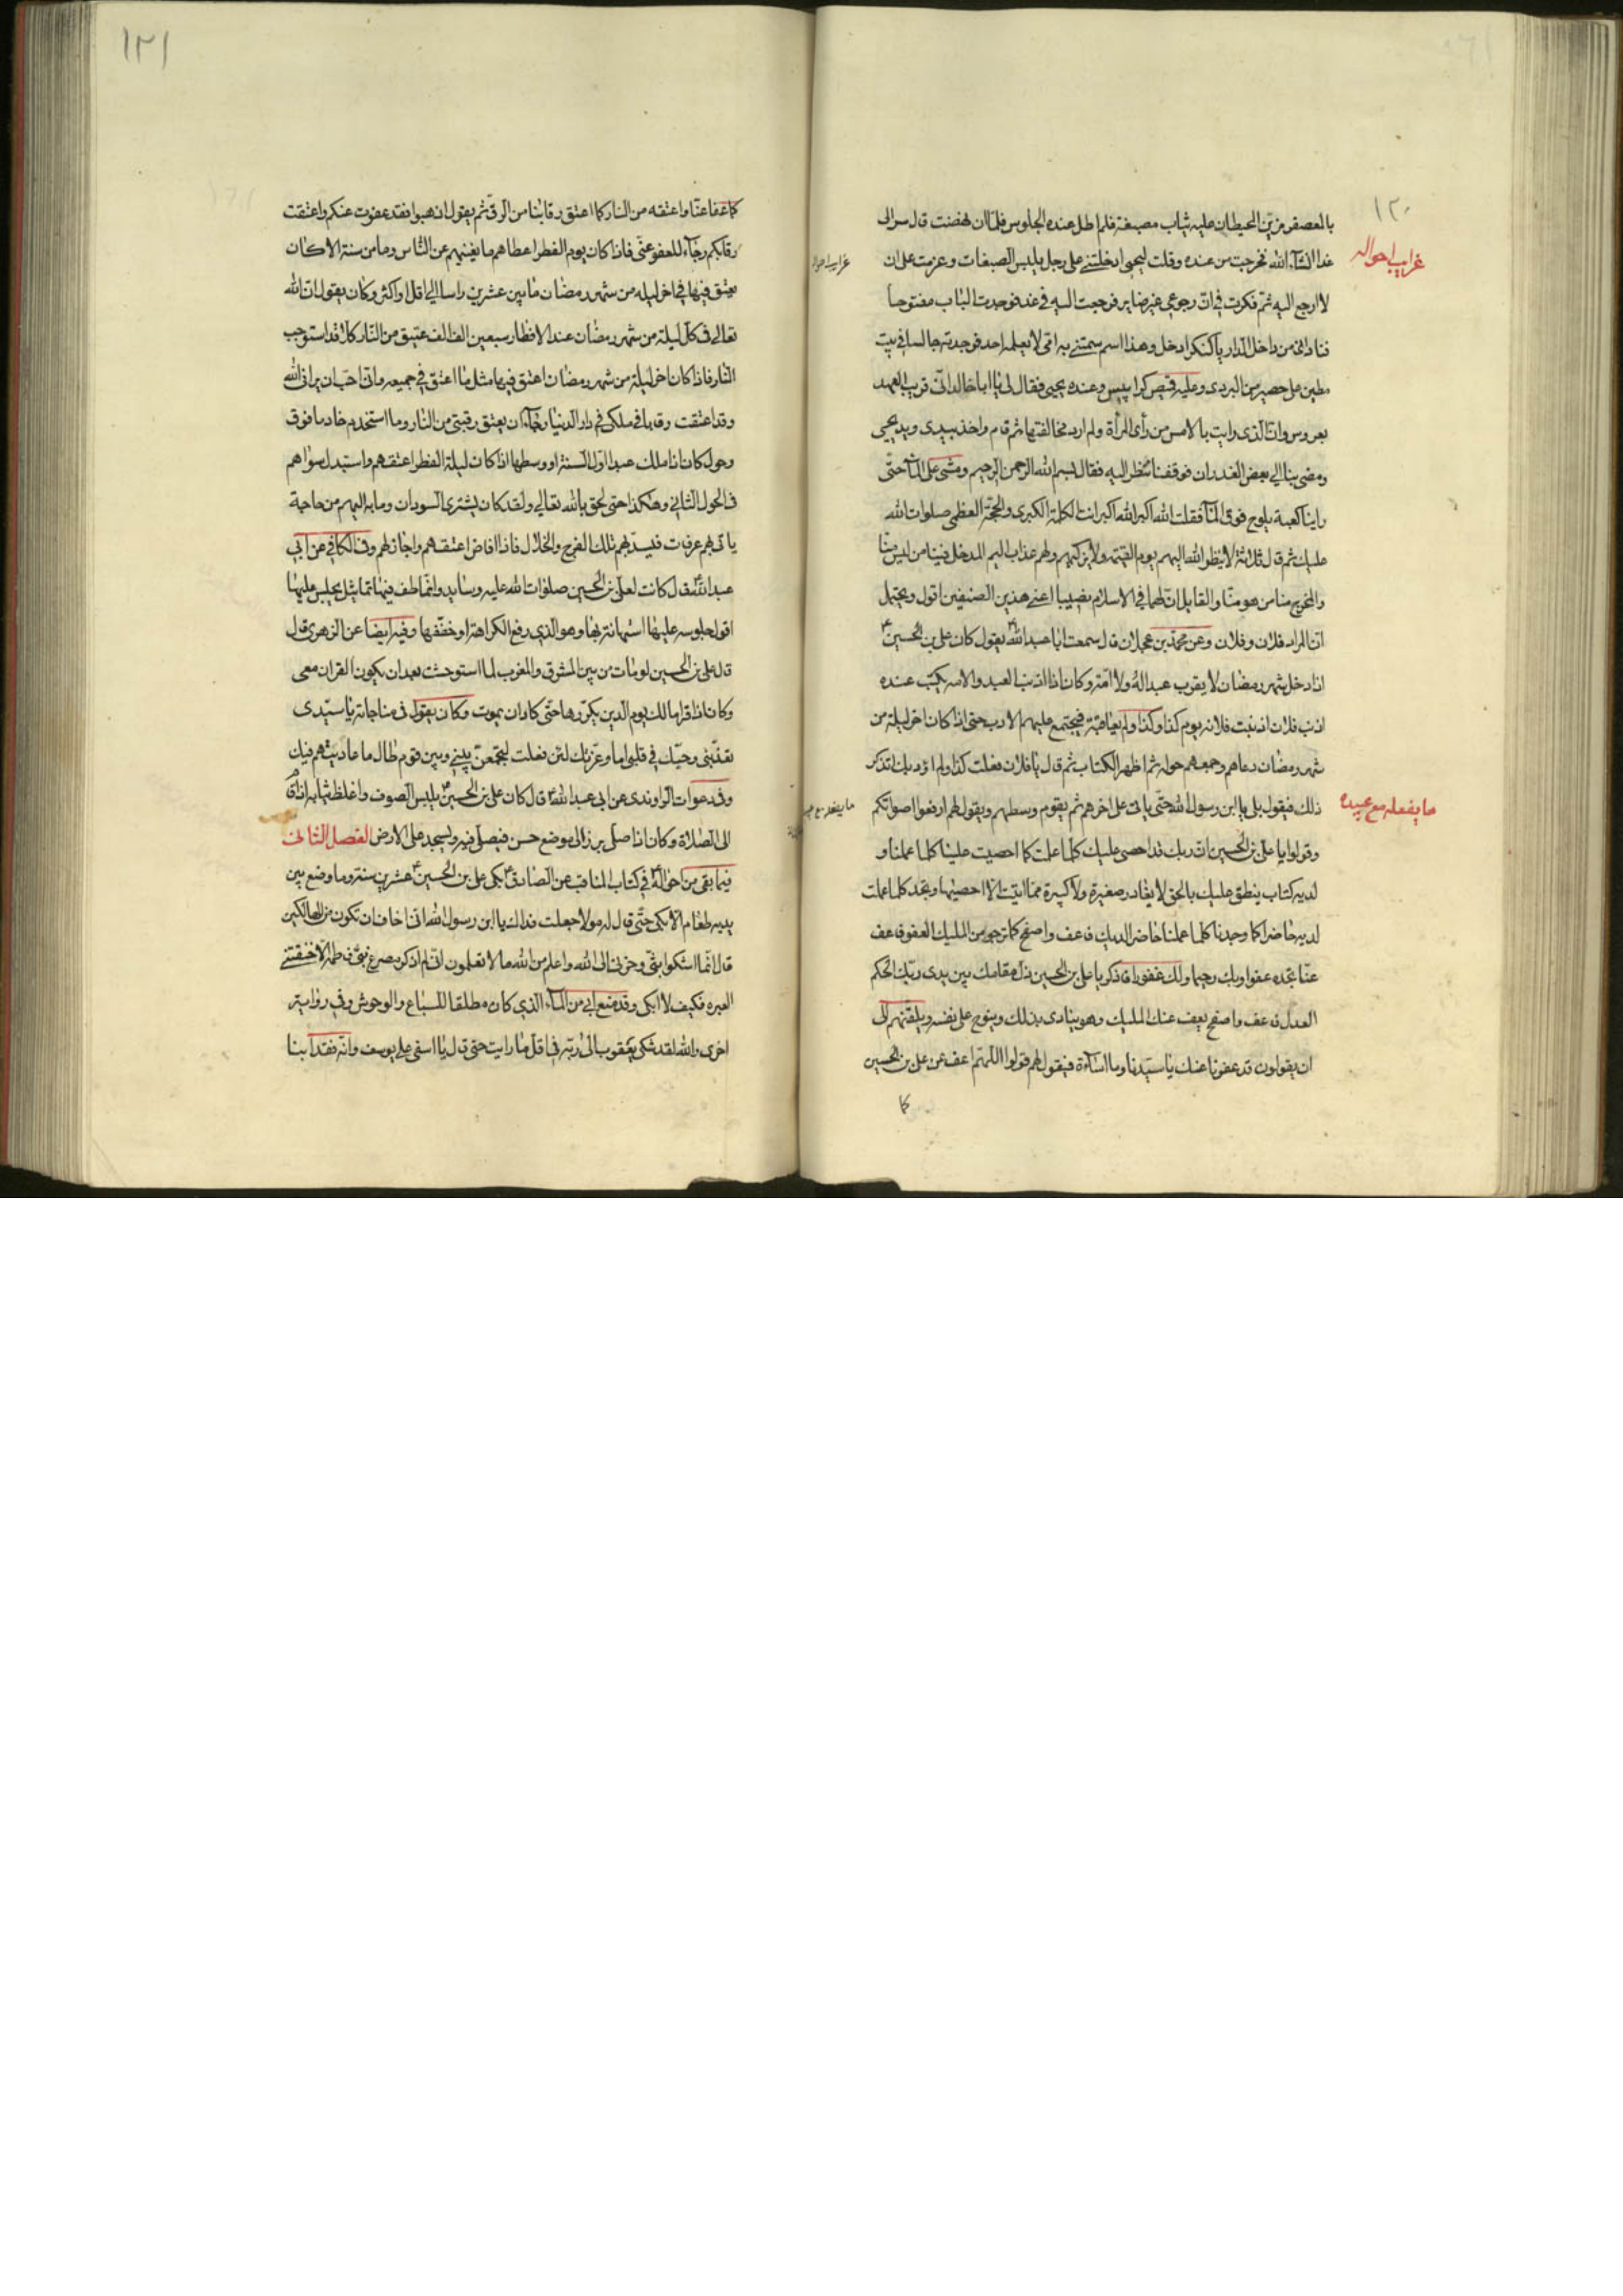 ١٢٠
بالمعصفر مزيّن الحيطان عليه ثياب مصبغة فلم اطل عنده الجلوس فلمّا ان نهضت قال سر الى
غرايب احواله
غدا انشآء الله فخرجت من عنده وقلت ليحيى ادخلتنى على رجل يلبس الصبغات وعزمت على ان
لا ارجع اليه ثمّ فكرت فى انّ رجوعى غير ضاير فرجعت اليه فى غد فوجدت الباب مفتوحا
فنادانى من داخل الدار يا كنكر ادخل وهذا اسم سمتنى به امّى لا يعلمه احد فوجدته جالسا فى بيت
مطين على حصير من البردى وعليه قميص كرابيس وعنده يحيى فقال لى يا ابا خالد انّى قريب العهد
بعروس وانّ الذى رايت بالامس من رأى المرأة ولم ارد مخالفتها ثم قام واخذ بيدى وبيد يحيى
ومضى بنا الى بعض الغدران فوقفنا ننظر اليه فقال بسم الله الرحمن الرحيم ومشى على المآء حتّى
راينا كعبه يلوح فوق المآء فقلت الله اكبر الله اكبر انت الكلمة الكبرى والحجّة العظمى صلوات الله
عليك ثم قال ثلاثة لا ينظر الله اليهم يوم القيمة ولا يزكيهم ولهم عذاب اليم المدخل فينا من ليس منّا
والمخرج منا من هو منّا والقايل انّ لهما فى الاسلام نصيبا اعنى هذين الصنفين اقول ويحتمل
انّ المراد فلان وفلان وعن محمّد بن عجلان قال سمعت ابا عبد الله يقول كان على بن الحسين
اذا دخل شهر رمضان لا يقرب عبدا له ولا امّة وكان اذا اذنب العبد والامه يكتب عنده
اذنب فلان اذنبت فلانه يوم كذا وكذا ولم يعاقبه فيجتمع عليهم الادب حتى اذا كان اخر ليلة من
شهر رمضان دعاهم وجمعهم حوله ثم اظهر الكتاب ثم قال يا فلان فعلت كذا ولم اؤدبك اتذكر
ما يفعله مع عبيده
ذلك فيقول بلى يا ابن رسول الله حتّى ياتى على اخرهم ثم يقوم وسطهم ويقول لهم ارفعوا اصواتكم
وقولوا يا علىّ بن الحسين انّ ربك قد احصى عليك كلّما عملت كما احصيت علينا كلما عملنا و
لديه كتاب ينطق عليك بالحق لا يغادر صغيرة ولا كبيرة ممّا اتيت الا احصيها وتجد كلما عملت
لديه حاضرا كما وجدنا كلما عملنا حاضرا لديك فاعف واصفح كما ترجو من المليك العفو فاعف
عنّا تجده عفوا وبك رحيما ولك غفورا فاذكر يا على بن الحسين ذل مقامك بين يدى ربّك الحكم
العدل فاعف واصفح يعف عنك المليك وهو ينادى بذلك وينوح على نفسه ويلقنهم الى
ان يقولون قد عفونا عنك يا سيّدنا وما اسآءة فيقول لهم قولوا اللهمّ اعف عن على بن الحسين
كما
١٢١
كما عفا عنّا واعتقه من النار كما اعتق رقابنا من الرقّ ثم يقول اذهبوا فقد عفوت عنكم واعتقت
رقابكم رجآء للعفو عنّى فاذا كان يوم الفطر اعطاهم ما يغنيهم عن النّاس وما من سنة الا كان
غرايب احواله
يعتق فيها فى اخر ليله من شهر رمضان ما بين عشرين راسا الى اقل او اكثر وكان يقول انّ الله
تعالى فى كلّ ليلة من شهر رمضان عند الافطار سبعين الف الف عتيق من النّار كلا قد استوجب
النّار فاذا كان اخر ليلة من شهر رمضان اعتق فيها مثل ما اعتق فى جميعه وانّى احبّ ان يرانى الله
وقد اعتقت رقابا فى ملكى فى دار الدنيا رجآء ان يعتق رقبتى من النّار وما استخدم خادما فوق
وحول كان اذا ملك عبدا اول السنة او وسطها اذا كان ليلة الفطر اعتقهم واستبدل سواهم
فى الحول الثانى وهكذا حتى لحق بالله تعالى ولقد كان يشترى السودان وما به اليهم من حاجة
ياتى بهم عرفات فيسدّ بهم تلك الفرج والخلال فاذا افاض اعتقهم واجاز لهم وفى الكافى عن ابى
عبد الله قال كانت لعلى بن الحسين صلوات الله عليه وسايد وانماطف فيها تماثيل يجلس عليها
اقول جلوسه عليها استهانة بها وهو الذى رفع الكراهة او خفّفها وفيه ايضا عن الزهرى قال
قال على بن الحسين لو مات من بين المشرق والمغرب لما استوحشت بعد ان يكون القران معى
وكان اذا قرا مالك يوم الدين يكرّرها حتّى كاد ان يموت وكان يقول فى مناجاته يا سيّدى
تعذّبنى وحبّك فى قلبى اما وعزّتك لئن فعلت لتجمعنّ بينى وبين قوم طال ما عاديتهم فيك
وفى دعوات الراوندى عن ابى عبد الله قال كان على بن الحسين يلبس الصوف واغلظ ثيابه اذا قام
ما يفعله مع عبيده
الى الصلاة وكان اذا صلى برز الى موضع حسن فيصلّى فيه ويسجد على الارض الفصل الثانى
فيما بقى من احواله فى كتاب المناقب عن الصادق بكى على بن الحسين عشرين سنة وما وضع بين
يديه طعام الّا بكى حتّى قال له مولا جعلت فداك يا ابن رسول الله انّى اخاف ان تكون من الهالكين
قال انّما اشكوا بثّى وحزنى الى الله واعلم من الله ما لا تعلمون انّى لم اذكر مصرع بنى فاطمة الا خنقتنى
العبره فكيف لا ابكى وقد منع ابى من المآء الذى كان مطلقا للسّباع والوحوش وفى رواية
اخرى والله لقد شكى يعقوب الى ربّه فى اقلّ ما رايت حتى قال يا اسفى على يوسف وانّه فقد ابنا